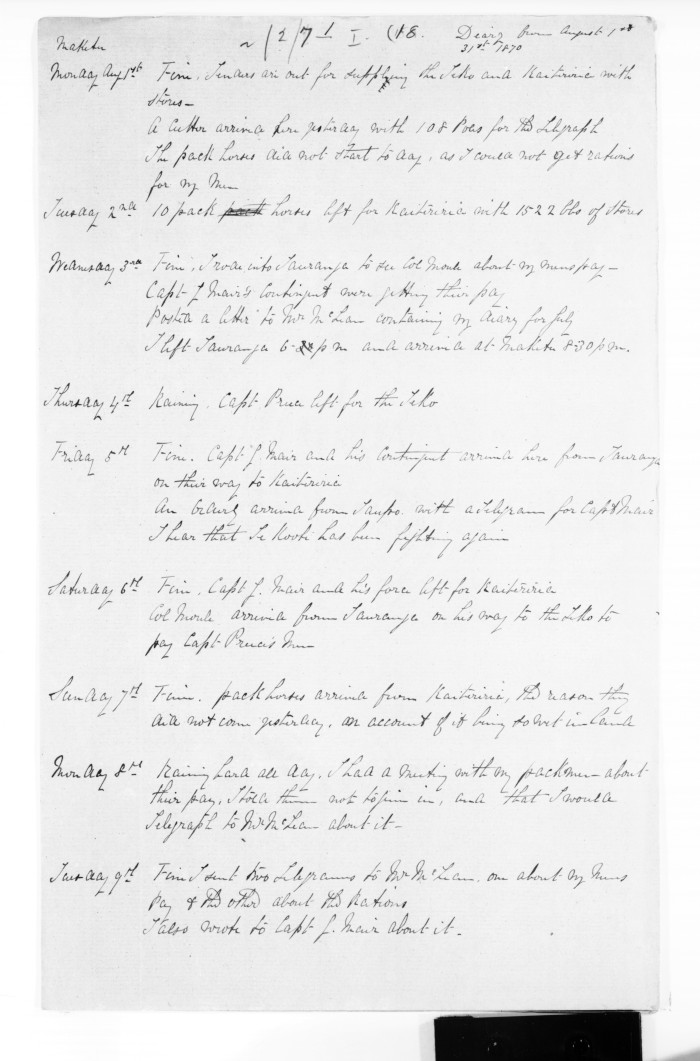 Maketu
Diary from August 1st
31st 1870
Monday Aug 1st Fine. Tenders are out for supplying the Teko and Kaiteriria with
stores—
A Cutter arrived here yesterday with 108 Poles for the Telegraph
The pack horses did not start to day, as I could not get rations
for my Men
Tuesday 2nd 10 pack pack horses left for Kaiteriria with 1522 lbs of Stores
Wednesday 3rd Fine. I rode into Tauranga to see Col Moule about my mens pay—
Capt G Mair's Contingent were getting their pay
Posted a letter to Mr McLean containing my diary for July
I left Tauranga 6 pm and arrived at Maketu 8.30 pm.
Thursday 4th Raining. Capt Preece left for the Teko
Friday 5th Fine. Capt G. Mair and his Contingent arrived here from Tauranga
on their way to Kaiteriria
An Orderly arrived from Taupo with a Telegram for Capt Mair
I hear that Te Kooti has been fighting again
Saturday 6th Fine. Capt G. Mair and his force left for Kaiteriria
Col Moule arrived from Tauranga on his way to the Teko to
pay Capt Preece's Men
Sunday 7th Fine. pack horses arrived from Kaiteriria, the reason they
did not come yesterday, on account of it being so wet in land
Monday 8th Raining hard all day. I had a meeting with my packmen about
their pay, I told them not to give in, and that I would
Telegraph to Mr McLean about it—
Tuesday 9th Fine I sent two telegrams to Mr McLean. one about my Mens
Pay & the other about the Rations
I also wrote to Capt G. Mair about it.